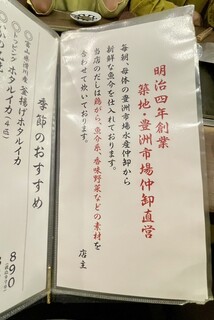 明治四年創業
築地・豊洲市場仲卸直営
毎朝、母体の豊洲市場水産仲卸から
新鮮な魚介を仕入れております。
当店のだしは鶏がら、魚介系、香味野菜などの素材を
合わせて炊いております。
店主
季節のおすすめ
釜揚げホタルイカ
890
ホタルイカ(4匹)